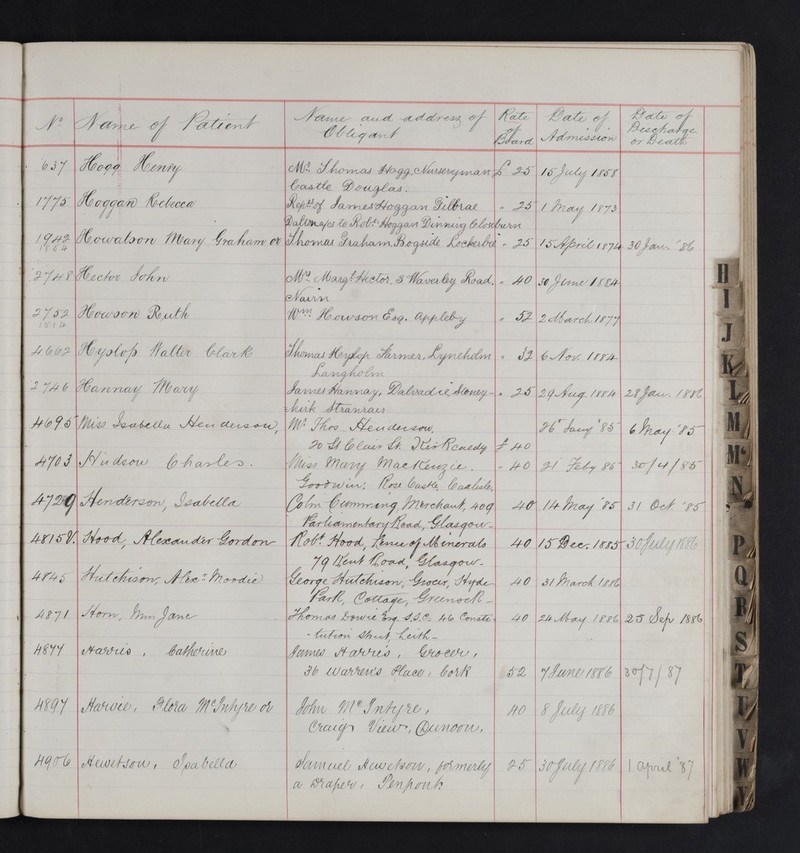 No Name of Patient Name and address of Obligant Rate of Board Date of Admission Date of Discharge or Death
637 Hogg Henry Mr. Thomas Hogg, Nurseryman £ 25 15 July 1858
Castle Douglas.
1775 Hoggan Rebecca Repts of James Hoggan Gilbrae " 25 1 May 1873
Robt. Hoggan Dinning Closeburn
1942 Howatson Mary Graham or Thomas Graham, Bogside Lockerbie " 25 15 April 1874 30 Jan. '86
2748 Hector John Mrs Margt. Hector, 3 Waverley Road. " 40 30 June 1884
Nairn
2752 Howson Ruth Wm. Howson Esq. Appleby " 52 2 March 1877
4662 Hyslop Walter Clark Thomas Hyslop Farmer, Lyneholm " 32 6 Nov. 1884
Langholm
2746 Hannay Mary James Hannay, Stoney- " 25 29 Aug 1884 28 Jan. 1886
kirk Stranraer
4695 Miss Isabella Henderson, Mr. Thos. Henderson, 26 Jany '85 6 May '85
20 St Clair St. Kirkcaldy £ 40
4703 Hudson Charles. Miss Mary MacKenzie. " 40 21 Feby 85 30/4/85
Goodwin. Rose Castle, Carlisle
4729 Henderson, Isabella Colin Cumming, Merchant, 409 40 14 May '85 31 Oct '85
Parliamentary Road, Glasgow-
4815 Hood, Alexander Gordon Robt. Hood, of Minerals 40 15 Dec. 1885 30 July 1886
79 Kent Road, Glasgow-
4845 Hutchison, Alexr. Moodie George Hutchison, Grocer, Hyde 40 31 March 1886
Park, Cottage, Greenock-
4871 Horn, Jane Thomas Dowie Esq. S.S.C. 46 Consti- 40 24 May 1886 25 Sep 1886
-tution Street, Leith-
4877 Harris, Catherine James Harris, Grocer,
36 Warren's Place, Cork 52 7 June 1886 30/7/87
4897 Harvie, Flora McIntyre or John McIntyre, 40 8 July 1886
Craig View, Dunoon,
4906 Hewetson, Isabella Samuel Hewetson, formerly 25 30 July 1886 1 April '87
a Draper, Penpont
H
I
J
K
L
M
Mc
N
P
Q
R
S
T
U
V
W
Y